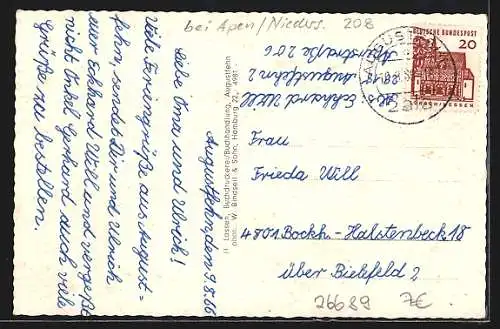 bei Apen/Nieders. 208
Augustfehn, den 9.8.66
Liebe Oma und Ulrich!
Viele Feriengrüße aus August=
fehn, sendet Dir und Ulrich
euer Eckhard Will und vergeßt
nicht Onkel Gerhard auch viele
Grüße zu bestellen.
H. Lassen, Buchdruckerei/Buchhandlung, Augustfehn
phot. W. Bindseil & Sohn, Hamburg 22, 4981
Abs.: Eckhard Will
Augustfehn 2
Südstraße 206
DEUTSCHE BUNDESPOST
20
LORSCH/HESSEN
Frau
Frieda Will
4801 Bockh.- Halstenbeck 18
über Bielefeld 2
26689 7€